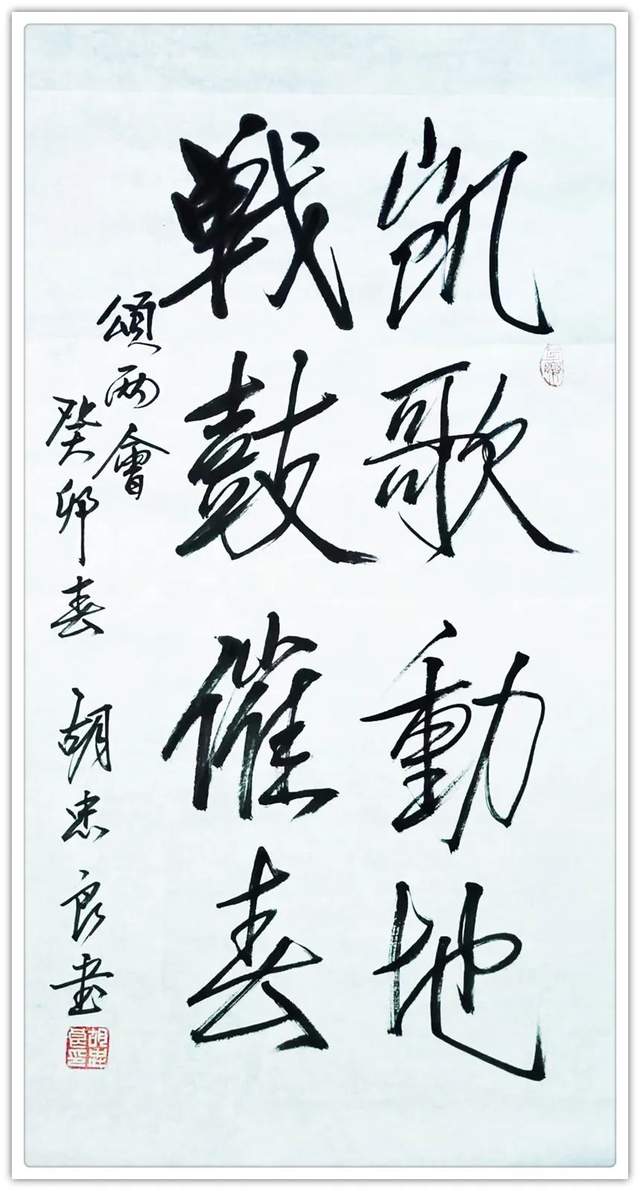 凱歌動地
戰鼓催春
頌兩會
癸卯春 胡忠良書